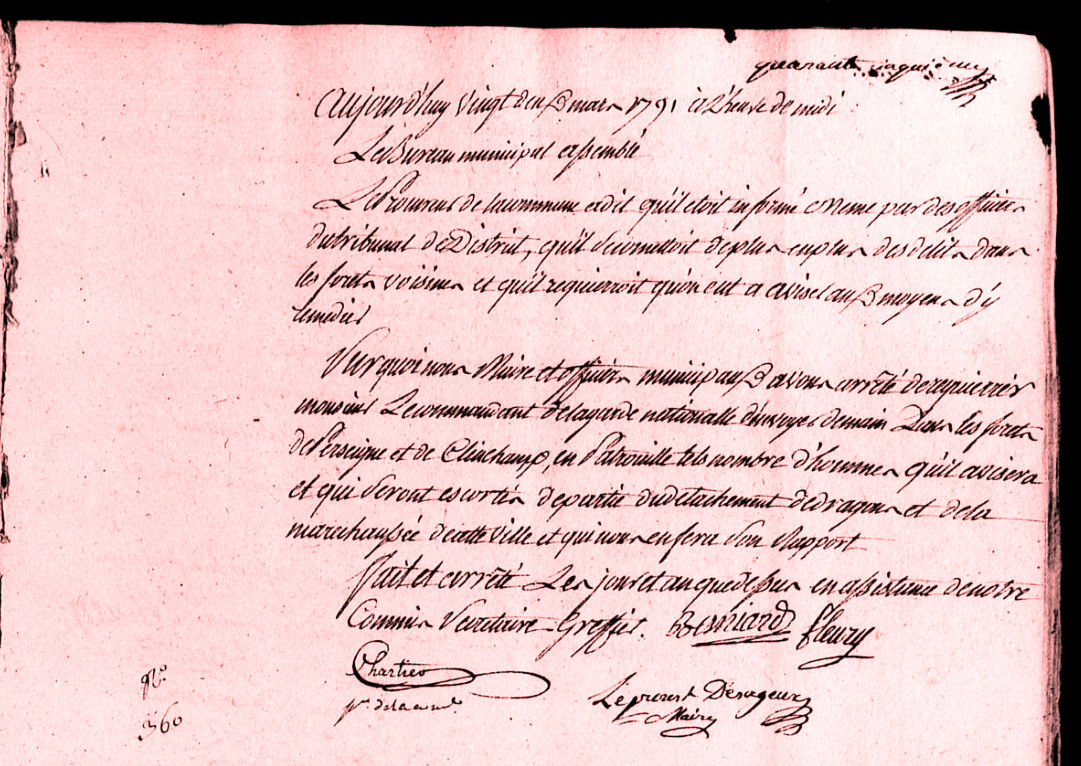 quarante cinquieme
Aujourd'huy vingt deux mars 1791 à L'heure de midi
Le Bureau municipal assemblé
Le Procureur de la commune a dit qu'il étoit informé même par des officiers
du tribunal de District, qu'il se comettoit de plus en plus des délits dans
les forets voisines et qu'il requierroit qu'on eut a aviser aux moyens d'y
remédier
Sur quoi nous Maire et officiers municipaux avons arrêté de requierrir
monsieur Le commandant de la garde nationalle d'envoyer demain Dans les forets
de Perseigne et de Clinchamp, en Patrouille tels nombre d'hommes qu'il avisera
et qui seront escortés de partie du detachement de dragons et de la
marechaussée de cette ville et qui nous en fera son Rapport
fait et arrêté Les jour et an que dessus en assistance de notre
Commis Secretaire Greffier. Besniard fleury
Chartier
pr. de la com.
Leproust Desageux
Maire
No.
360